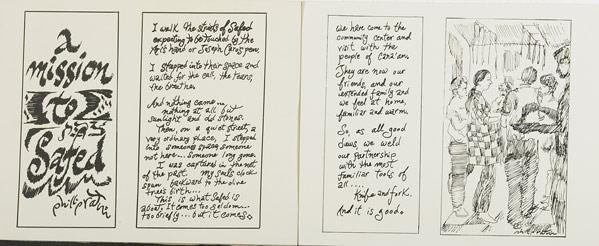 a
mission
to
Safed
I walk the streets of Safed
expecting to be touched by the
Ari's hand or Joseph Caro's pen.
I stepped into their space and
waited for the call, the tears,
the breath.
And nothing came...
nothing at all but
sunlight and old stones.
Then, on a quiet street, a
very ordinary place, I stepped
into someone's space, someone
not here... someone long gone.
I was captured in the net
of the past. my soul's clock
span backward to the olive
tree's birth...
This is what Safed is
about. It comes too seldom...
too briefly... but it comes.
We have come to the
community center and
visit with the
people of
They are now our
friends, and our
extended family and
we feel at home,
familiar and warm.
So, as all good
Jews, we weld
our partnership
with the most
familiar tools of
all....
Knife and fork.
And it is good.